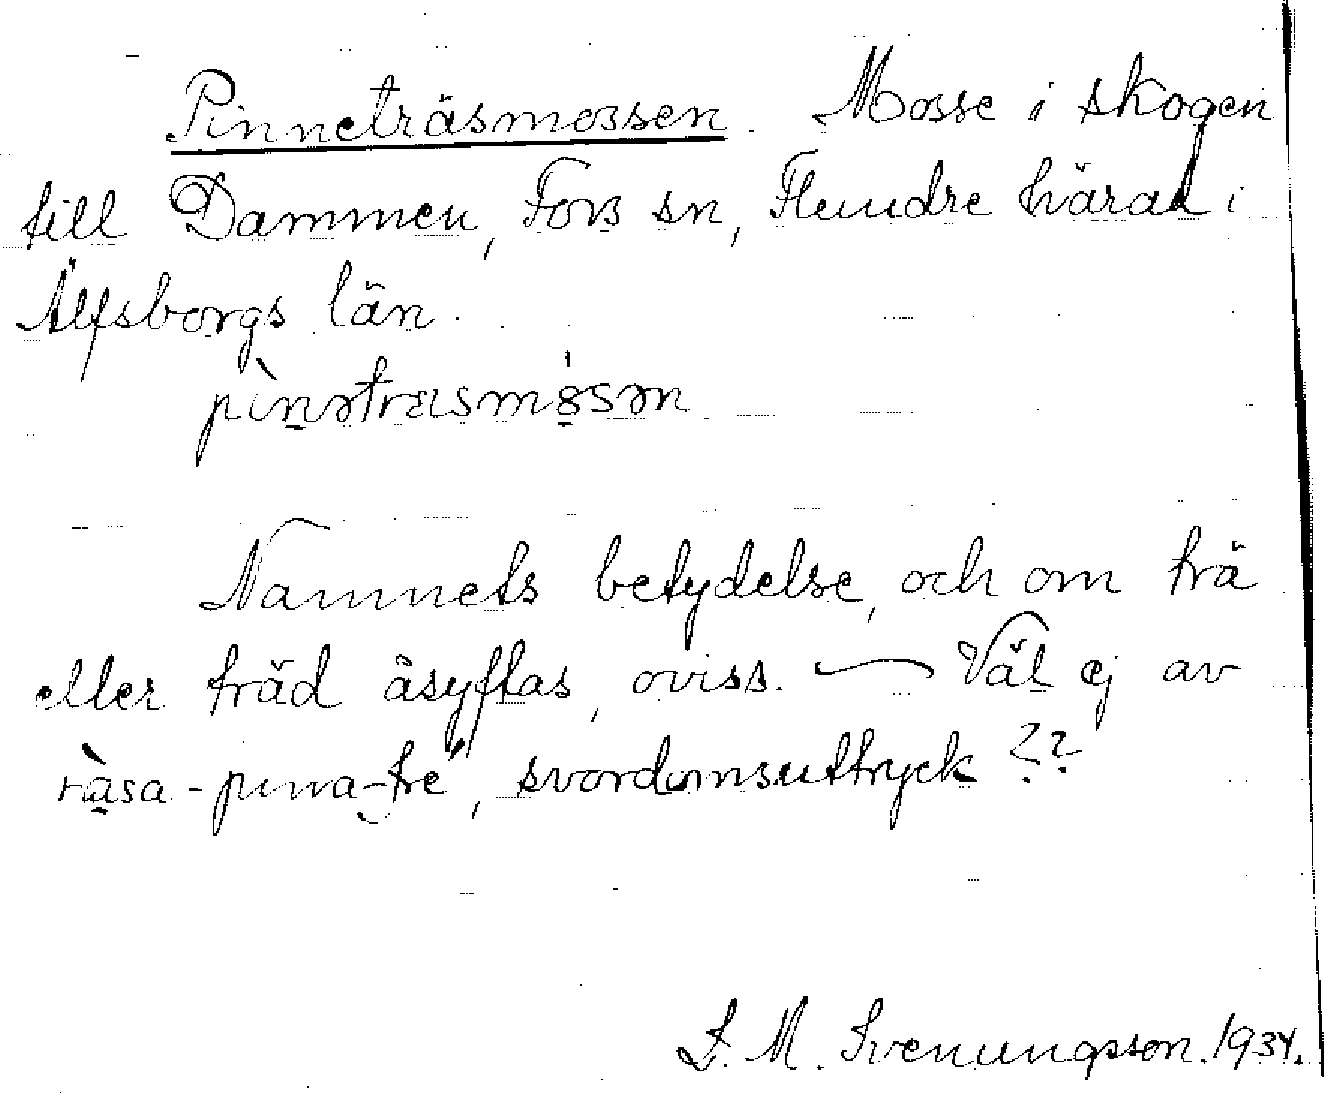 Pinneträsmossen. Mosse i skogen
till Dammen, Fors sn, Flundre härad i
Älfsborgs län.
pìnətrasmósən
Namnets betydelse, och om trä
eller träd åsyftas, oviss. — Väl ej av
ràsa-pinna-tre", svordomsuttryck ??
M. Svenungsson. 1934.